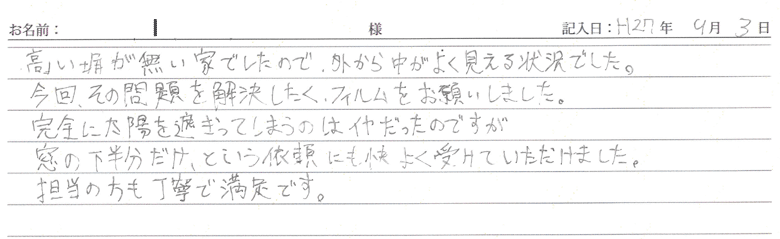 お名前： 様 記入日：H27年 9月 3日
高い塀が無い家でしたので、外から中がよく見える状況でした。
今回、その問題を解決したく、フィルムをお願いしました。
完全に太陽を遮ぎってしまうのはイヤだったのですが
窓の下半分だけ、という依頼にも快よく受けていただけました。
担当の方も丁寧で満足です。